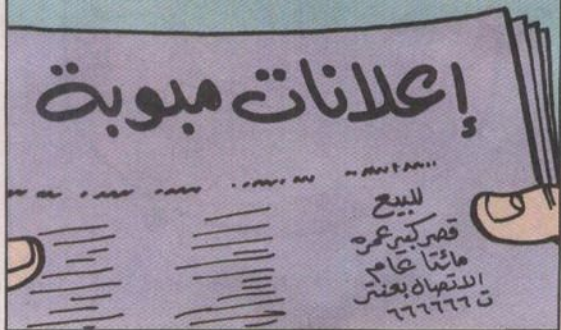 إعلانات مبوبة
للبيع
قصر كبير عمره
مائتا عام
الاتصال بعنتر
ت ٦٦٦٦٦٦